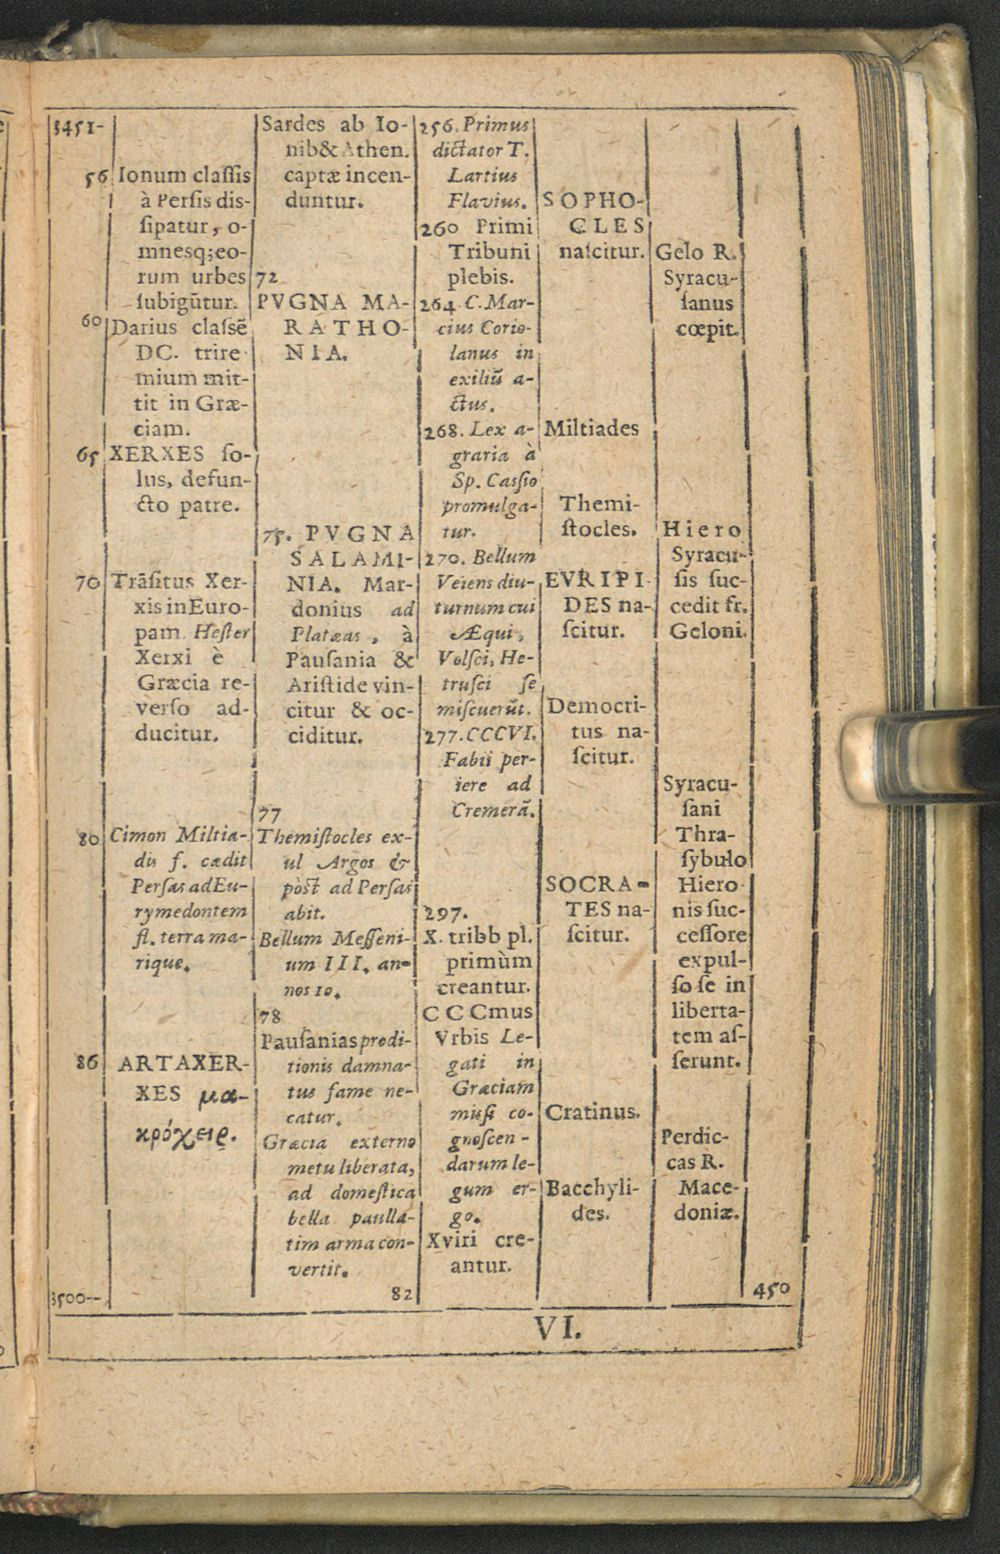 3451-
56 Ionum classis
à Persis dis-
sipatur, o-
mnesq; eo-
rum urbes
subigūtur.
60 Darius classē
DC. trire
mium mit-
tit in Græ-
ciam.
65 XERXES so-
lus, defun-
cto patre.
70 Trāsitus Xer-
xis in Euro-
pam. Hester
Xerxi è
Græcia re-
verso ad-
ducitur.
80 Cimon Miltia-
dis f. cædit
Persas ad Eu-
rymedontem
fl. terra ma-
rique.
86 ARTAXER-
XES μα-
κρόχειρ.
3500--
Sardes ab Io-
nib& Athen.
captæ incen-
duntur.
72
PVGNA MA-
RATHO-
NIA.
75. PVGNA
SALAMI-
NIA. Mar-
donius ad
Platæas, à
Pausania &
Aristide vin-
citur & oc-
ciditur.
77
Themistocles ex-
ul Argos &
pòst ad Persas
abit.
Bellum Messeni-
um III. an-
nos 10.
78
Pausanias prodi-
tionis damna-
tus fame ne-
catur.
Græcia externo
metu liberata,
ad domestica
bella paulla-
tim arma con-
vertit.
82
256. Primus
dictator T.
Lartius
Flavius.
260 Primi
Tribuni
plebis.
264. C. Mar-
cius Corio-
lanus in
exiliū a-
ctus.
268. Lex a-
graria à
Sp. Cassio
promulga-
tur.
270. Bellum
Veiens diu-
turnum cui
Æqui,
Volsci, He-
trusci se
miscuerūt.
277. CCCVI.
Fabii per-
iere ad
Cremerā.
297.
X. tribb pl.
primùm
creantur.
CCCmus
Vrbis Le-
gati in
Græciam
missi co-
gnoscen-
darum le-
gum er-
go.
Xviri cre-
antur.
SOPHO-
CLES
nascitur.
Miltiades
Themi-
stocles.
EVRIPI-
DES na-
scitur.
Democri-
tus na-
scitur.
SOCRA-
TES na-
scitur.
Cratinus.
Bacchyli-
des.
Gelo R.
Syracu-
sanus
cœpit.
Hiero
Syracu-
sis suc-
cedit fr.
Geloni.
Syracu-
sani
Thra-
sybulo
Hiero-
nis suc-
cessore
expul-
so se in
liberta-
tem as-
serunt.
Perdic-
cas R.
Mace-
doniæ.
450
VI.